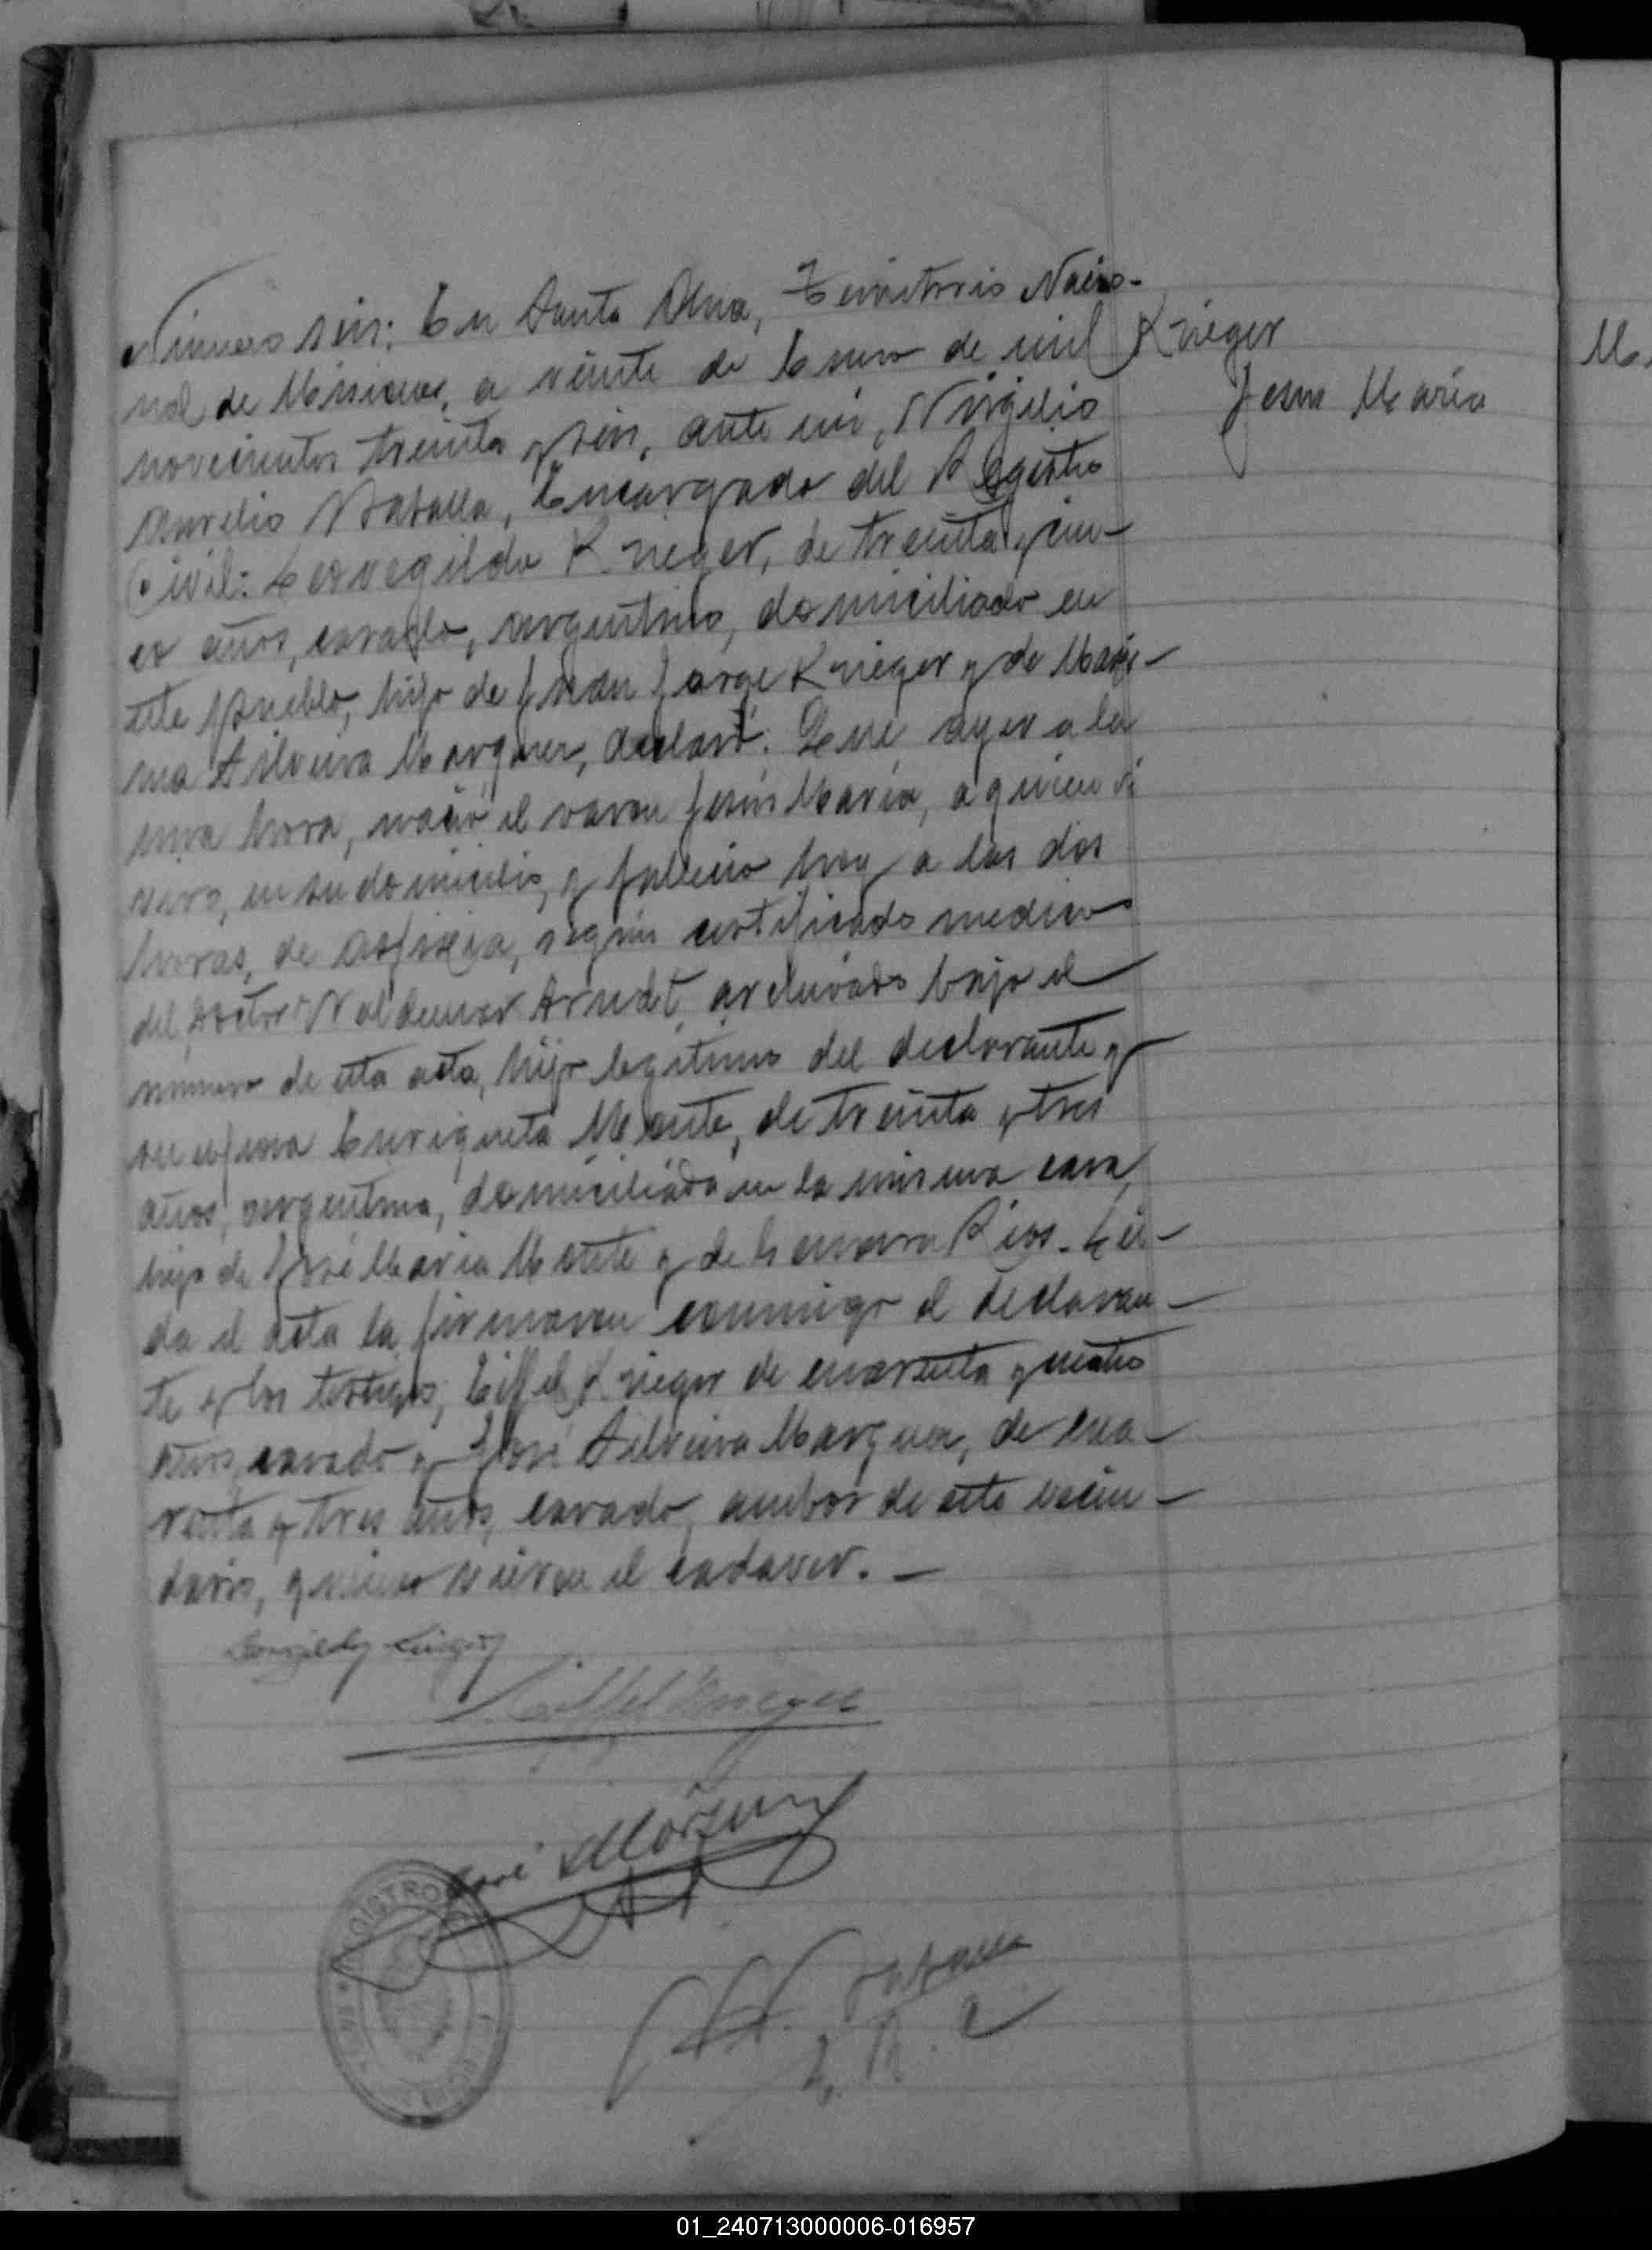 Número seis: En Santa Ana, Territorio Nacio-
nal de Misiones, a veinte de Enero de mil
novecientos treinta y seis, ante mi, Virgilio
Aurelio Batalla, Encargado del Registro
Civil: Leovegildo Krieger, de treinta y cin-
co años, casado, argentino, domiciliado en
este pueblo, hijo de Juan Jorge Krieger y de
Silveira Marquez, declaró: Que ayer a la
una hora, nació el varon Jesús María, a quien ví
vivo, en su domicilio, y falleció hoy a las dos
horas, de asfixia, según certificado medico
del doctor Waldemar Arndt, archivado bajo el
numero de esta acta, hijo legitimo del declarante y
su esposa Enriqueta, de treinta y tres
años, argentina, domiciliada en la misma casa,
hija de José María y de Genara Rios. Leí-
da el acta la firmaron conmigo el declaran-
te y los testigos, Eiffel Krieger de cuarenta y cuatro
años, casado y José Silveira Marquez, de cua-
renta y tres años, casado, ambos de este vecin-
dario, quienes vieron el cadaver. —
Krieger
Jesus María
Eiffel Krieger
José S Márquez
REGISTRO
Batalla
E. R. C
01_240713000006-016957